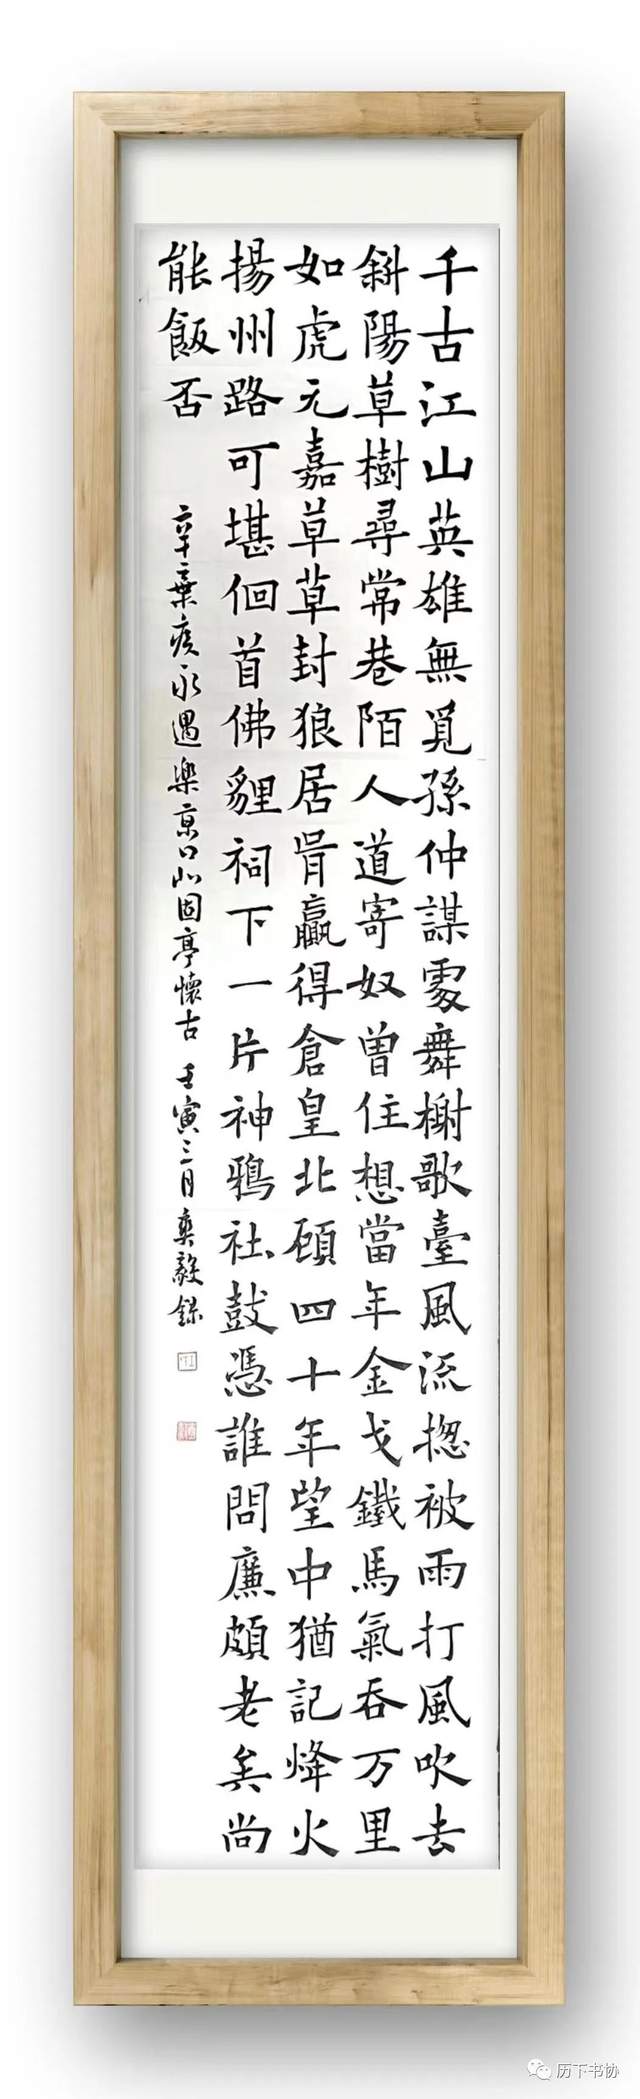 千古江山英雄無覓孫仲謀處舞榭歌臺風流揔被雨打風吹去
斜陽草樹尋常巷陌人道寄奴曾住想當年金戈鐵馬氣吞万里
如虎元嘉草草封狼居胥贏得倉皇北顧四十年望中猶記烽火
揚州路可堪佪首佛貍祠下一片神鴉社鼓憑誰問廉頗老矣尚
能飯否
辛棄疾永遇樂京口北固亭懷古 壬寅三月奕毅錄
历下书协